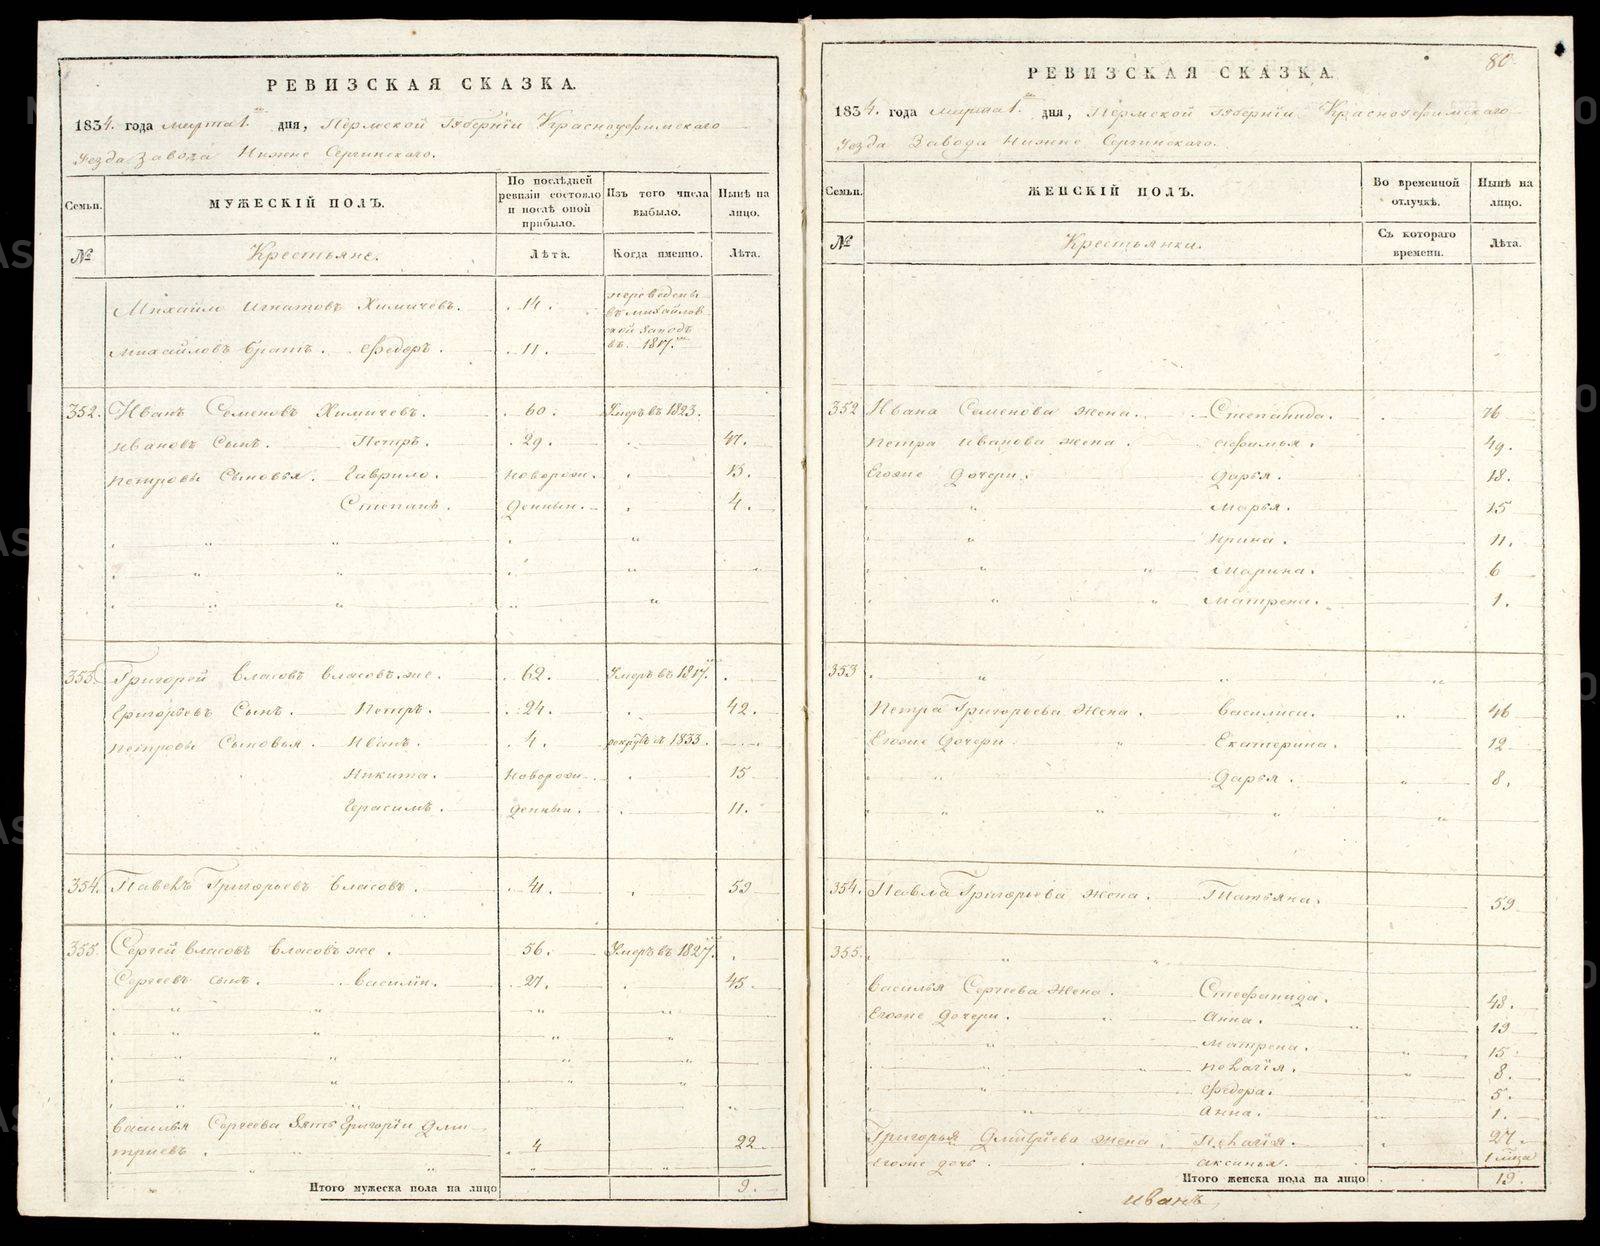 РЕВИЗСКАЯ СКАЗКА.
1834. года марта 1. дня, Пермской Губернїи Красноуфимского
Уезда Завода Нижне Сергинского.
Семьи.
МУЖЕСКІЙ ПОЛЪ.
По послѣдней ревизіи состояло и послѣ оной прибыло.
Изъ того числа выбыло.
Нынѣ на лицо.
№
Крестьяне.
Лѣта.
Когда именно.
Лѣта.
Михайло Игнатовъ Химичевъ. 14. переведены
въ михайлов
ской заводъ
Михайловъ братъ. Федоръ. 11. въ 1817.
352. Иванъ Семеновъ Химичевъ. 60. Умеръ въ 1823.
Ивановъ Сынъ. Петръ. 29. 47.
Петровы Сыновья. Гаврило. новорож. 13.
Степанъ. денныи. 4.
353. Григорей Власовъ Власовъ же. 62. Умеръ въ 1817.
Григорьевъ Сынъ. Петръ. 24. 42.
Петровы Сыновья. Иванъ. 4. 1833.
Никита. новорож. 15
Герасимъ. денныи. 11.
354. Павелъ Григорьевъ Власовъ. 41. 59
355. Сергей Власовъ Власовъ же. 56. Умеръ въ 1827.
Сергеевъ сынъ. Василїи. 27. 45.
Василья Сергеева Зять Григорїи Дми
триевъ. 4 22
Итого мужеска пола на лицо 9.
80
РЕВИЗСКАЯ СКАЗКА.
1834. года марта 1. дня, Пермской Губернїи Красноуфимского
Уезда Завода Нижне Сергинского.
Семьи.
ЖЕНСКІЙ ПОЛЪ.
Во временной отлучкѣ.
Нынѣ на лицо.
№
Крестьянки.
Съ котораго времени.
Лѣта.
352 Ивана Семенова жена. Степанида. 76
Петра Иванова жена. Афимья. 49.
Егоже дочери. Дарья. 18.
Марья. 15
Ирина. 11.
Марина. 6
Матрена. 1.
353
Петра Григорьева жена. Василиса. 46
Егоже дочери. Екатерина. 12
Дарья. 8.
354. Павла Григорьева жена. Татьяна. 59
355.
Василья Сергеева жена. Стефанида. 48.
Егоже дочери. Анна. 19
Матрена. 15.
Пелагїя. 8.
Федора. 5.
Анна. 1.
Григорья Дмитрїева жена. Пелагїя. 27.
Егоже дочь. Аксинья. 1
Итого женска пола на лицо 19.
Иванъ